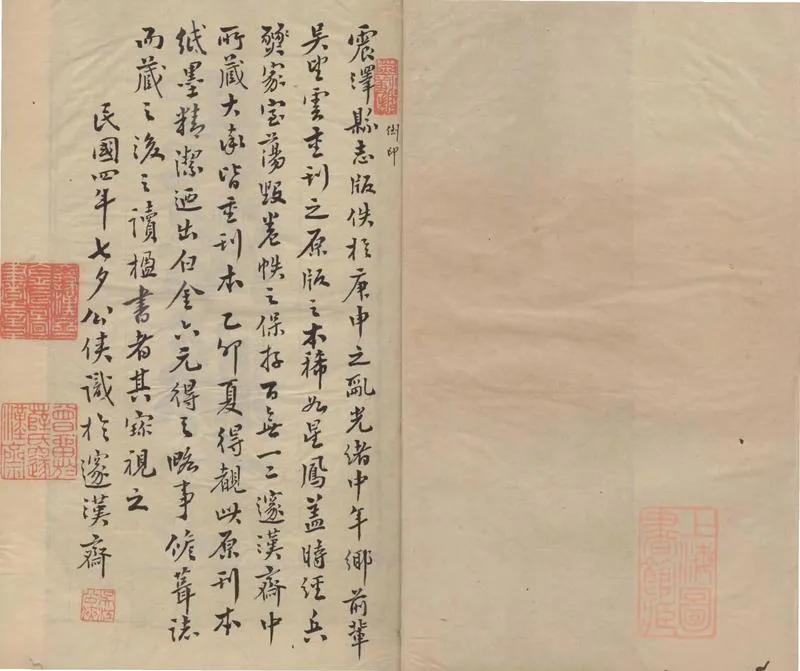 震澤縣志版佚於庚申之亂光緒中年鄉前輩
吳望雲重刊之原版之本稀如星鳳蓋時經兵
燹家室蕩毀卷帙之保存百無一二邃漢齋中
所藏大率皆重刊本乙卯夏得覩此原刊本
紙墨精潔迺出白金六元得之略事脩葺誌
而藏之後之讀楹書者其寶視之
民國四年七夕公俠識於邃漢齋
上海圖
書館藏
曾藏
薛氏邃
漢齋